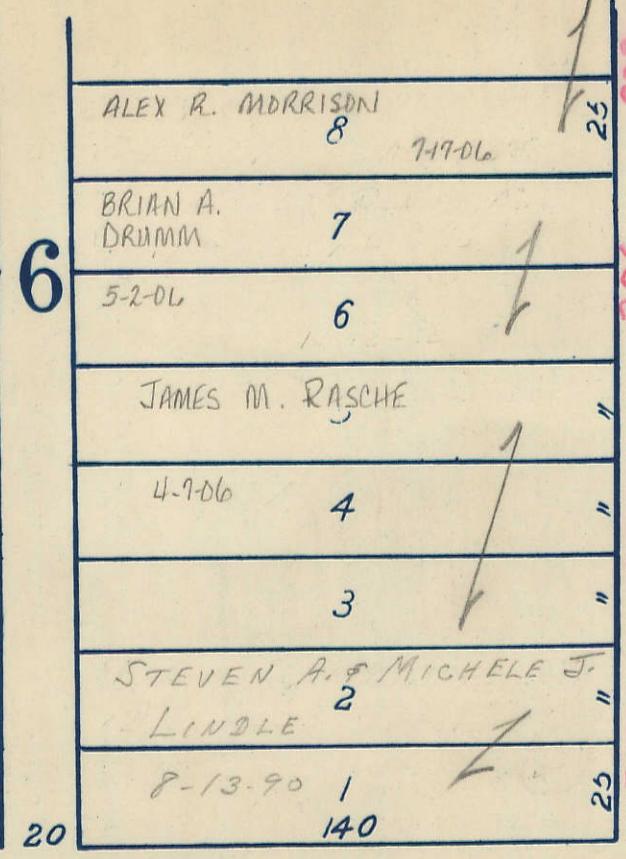 ALEX R. MORRISON
8
25
7-17-06
BRIAN A.
DRUMM
7
6
5-2-06
6
JAMES M. RASCHE
"
4-7-06
4
"
3
"
STEVEN A. & MICHELE J.
2
"
LINDLE
8-13-90
1
25
20
140